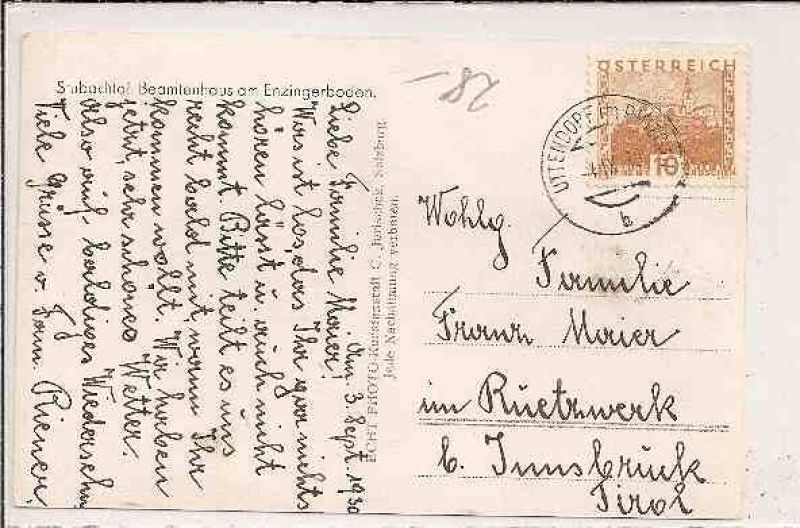 Stubachtal Beamtenhaus am Enzingerboden.
Am 3. Sept. 1930
Liebe Familie Maier!
Was ist los, das Ihr gar nichts
hören läst u. auch nicht
kommt. Bitte teilt es uns
recht bald mit, wann Ihr
kommen wollt. Wir haben
jetzt, sehr schönes Wetter.
also auf baldiges Wiedersehn
Viele Grüsse v. Fam. Riener.
ECHT. PHOTO Kunstanstalt C. Jurischek, Salzburg
Jede Nachahmung verboten.
28.-
ÖSTERREICH
10
UTTENDORF IM
b
Wohlg.
Familie
Franz Maier
im Ruetzwerk
b. Innsbrück
Tirol